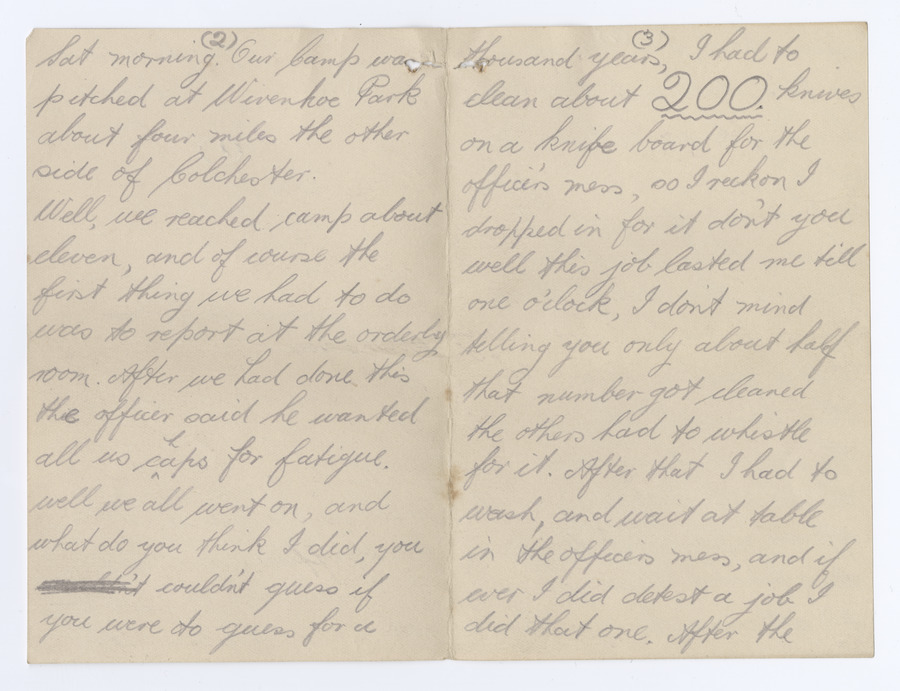 (2)
Sat morning. Our Camp was
pitched at Wivenhoe Park
about four miles the other
side of Colchester.
Well, we reached camp about
eleven, and of course the
first thing we had to do
was to report at the orderly
room. After we had done this
the officer said he wanted
all us chaps for fatigue.
well we all went on, and
what do you think I did, you
couldn't guess if
you were to guess for a
(3)
thousand years, I had to
clean about 200. knives
on a knife board for the
officer's mess, so I reckon I
dropped in for it don't you
well this job lasted me till
one o'clock, I don't mind
telling you only about half
that number got cleaned
the others had to whistle
for it. After that I had to
wash, and wait at table
in the officers mess, and if
ever I did detest a job I
did that one. After the